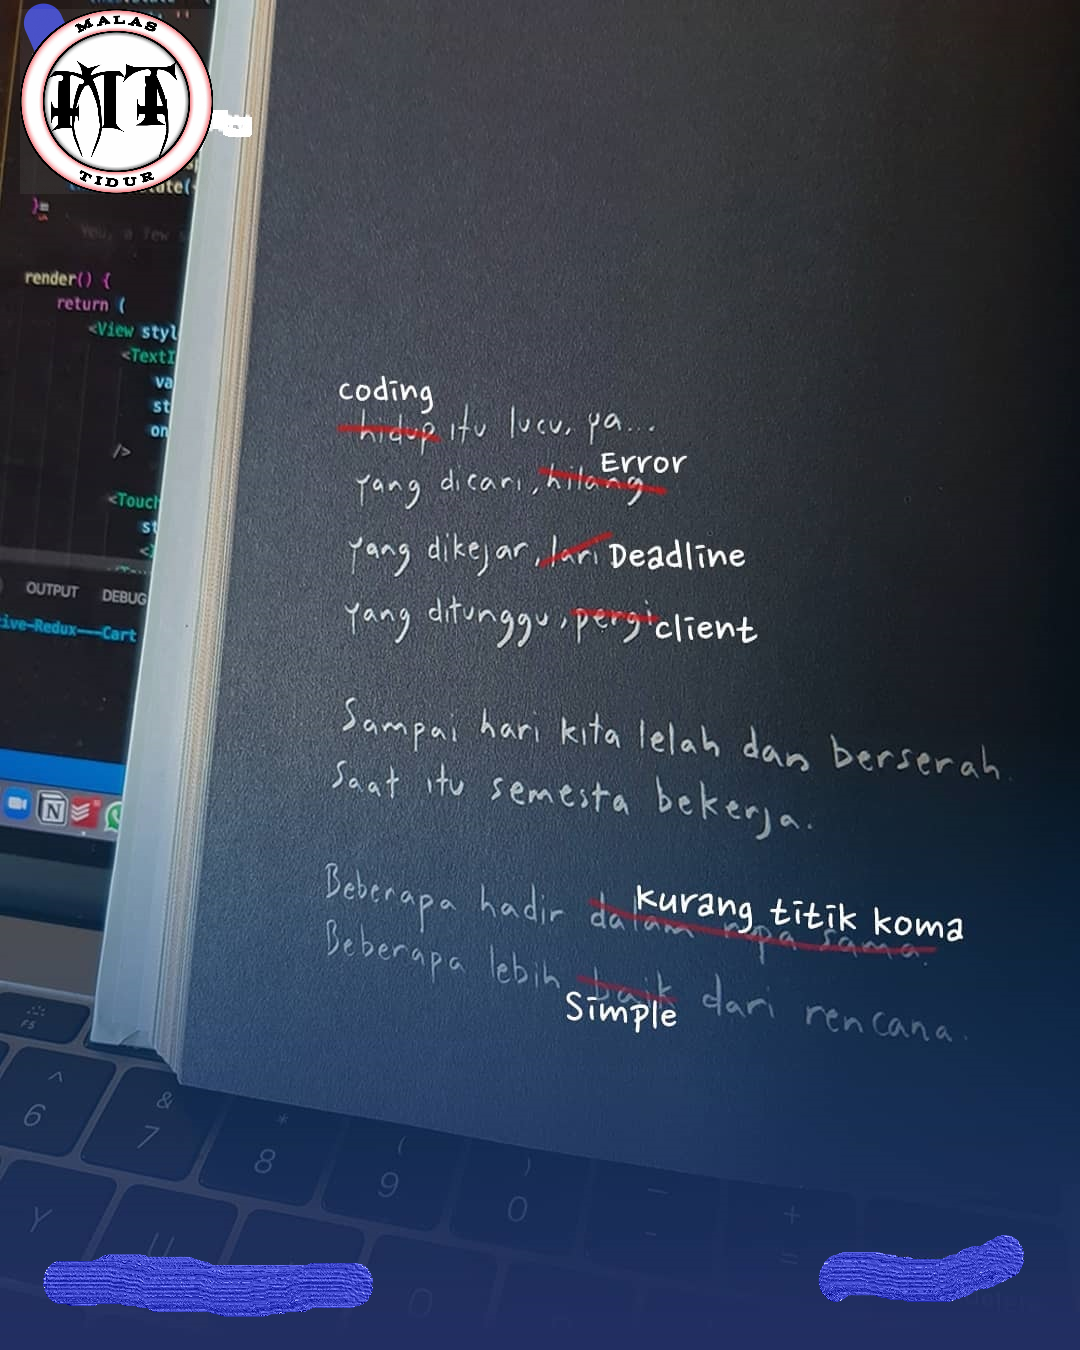 MALAS
MT
TIDUR
}
You, a few
render() {
return (
<View styl
<TextI
va
st
on
/>
<Touch
st
OUTPUT DEBUG
ive-Redux---Cart
coding
hidup itu lucu, ya...
Error
yang dicari, hilang
yang dikejar, lari Deadline
yang ditunggu, pergi client
Sampai hari kita lelah dan berserah.
Saat itu semesta bekerja.
kurang titik koma
Beberapa hadir dalam rupa sama.
Beberapa lebih baik dari rencana.
Simple
F5
^ & * ( ) — +
6 7 8 9 0 - =
Y U